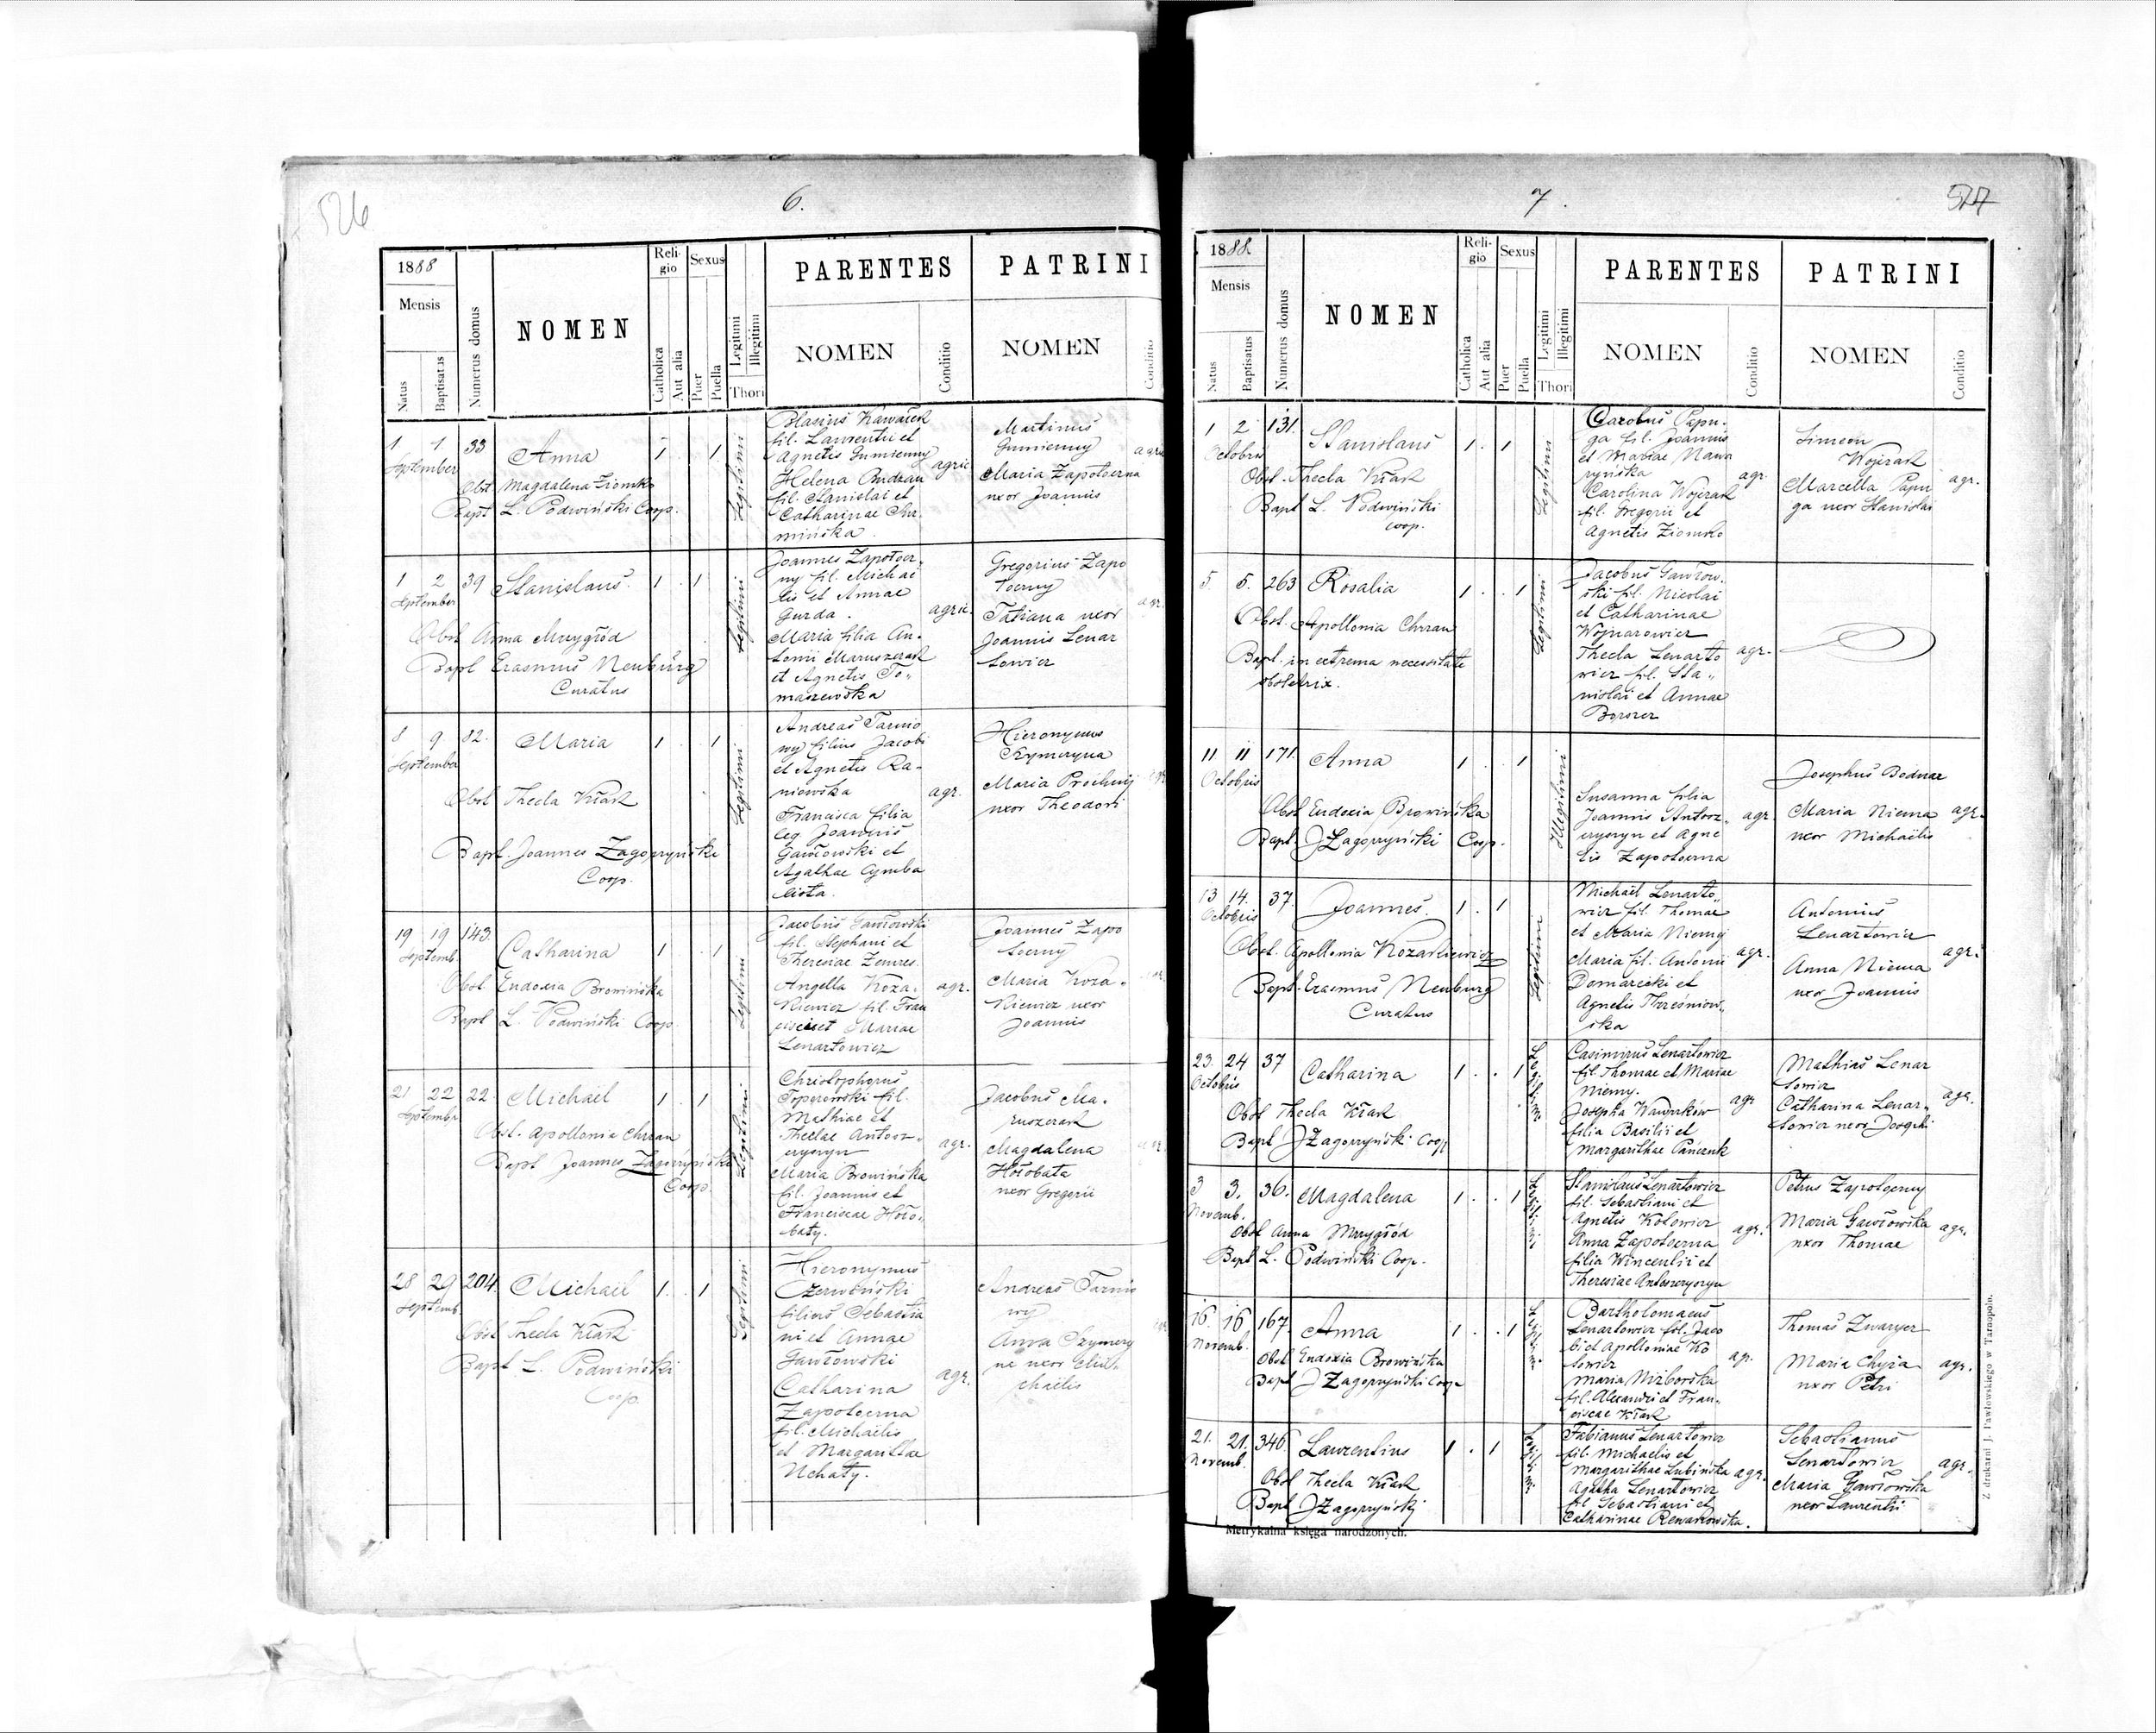 526
6.
1888
Mensis
Natus
Baptisatus
Numerus domus
NOMEN
Religio
Catholica
Aut alia
Sexus
Puer
Puella
Legitimi
Illegitimi
Thori
PARENTES
NOMEN
Conditio
PATRINI
NOMEN
Conditio
1 1 33 Anna 1 1
September
Obst Magdalena Ziomko
Bapt L. Podwiński Coop.
Legitimi
Blasius Kawałek
fil. Laurentii et
Agnetis Gumienny
Helena Andrean
fil. Stanislai et
Catharinae
mińska.
agric
Martinus
Gumienny
Maria Zapotoczna
uxor Joannis
1 2 39 Stanislaus 1 . 1
September
Obst Anna Mrzygłód
Bapt Erasmus Neuburg
Curatus
Legitimi
Joannes Zapotocz
ny fil. Michae
lis et Annae
Gurda.
Maria filia An-
tonii Maruszczak
et Agnetis To-
maszewska
agric.
Gregorius Zapo
toczny
Tatiana uxor
Joannis Lenar
towicz
8 9 82. Maria 1 . 1
September
Obst Thecla Kłak
Bapt. Joannes Zagorzyński
Coop.
Legitimi
Andreas Tarno
wy filius Jacobi
et Agnetis Ra-
niewska
Francisca filia
leg. Joannis
Gawłowski et
Agathae Cymba
lista.
agr.
Hieronymus
Maria Prochwij
uxor Theodori
19 19 143. Catharina 1 . 1
Septemb
Obst Eudoxia Browińska
Bapt L. Podwiński Coop
Legitimi
Jacobus Gawłowski
fil. Stephani et
Theresiae Zemres
Angella Koza-
kiewicz fil. Fran
cisci et Mariae
Lenartowicz
agr.
Joannes Zapo
toczny
Maria Koza-
kiewicz uxor
Joannis
21 22 22 Michael 1 . 1
Septembr
Obst. Apollonia Chrzan
Bapt Joannes Zagorzyński
Coop.
Legitimi
Christophorus
Toporowski fil.
Mathiae et
Theclae Antosz-
czyszyn
Maria Browińska
fil. Joannis et
Franciscae Hoło-
baty.
agr.
Jacobus Ma-
ruszczak
Magdalena
Hołobata
uxor Gregorii
28 29 204. Michael 1. . 1
Septemb.
Obst Thecla Kłak
Bapt L. Podwiński
Coop.
Legitimi
Hieronymus
Czerwiński
filius Sebastia
ni et Annae
Gawłowski
Catharina
Zapotoczna
fil. Michaelis
et Margarithae
Uchaty.
agr.
Andreas Tarno
wy
Anna Szymczy
na uxor Mi
chaelis
7.
1888
Mensis
Natus
Baptisatus
Numerus domus
NOMEN
Religio
Catholica
Aut alia
Sexus
Puer
Puella
Legitimi
Illegitimi
Thori
PARENTES
NOMEN
Conditio
PATRINI
NOMEN
Conditio
1 2 131. Stanislaus 1 . 1
Octobris
Obst. Thecla Kłak
Bapt L. Podwiński
coop.
Legitimi
Jacobus Papu-
ga fil. Joannis
et Mariae Nawa
ryńska
Carolina Wojczak
fil. Gregorii et
Agnetis Ziomko
agr.
Simeon
Wojczak
Marcella Papu
ga uxor Stanislai
agr.
5. 5. 263 Rosalia 1 . . 1
Obst. Apollonia Chrzan
Bapt. in extrema necessitate
obstetrix.
Legitimi
Jacobus Gawłow-
ski fil. Nicolai
et Catharinae
Wojnarowicz
Thecla Lenarto
wicz fil. Sta-
nislai et Annae
agr.
11 11 171. Anna 1 . . 1
Octobris
Obst Eudoxia Browińska
Bapt. J Zagorzyński Coop.
Illegitimi
Susanna filia
Joannis Antosz-
czyszyn et Agne
tis Zapotoczna
agr.
Josephus Bednar
Maria Niema
uxor Michaëlis
agr.
13 14. 37. Joannes. 1 . 1
Octobris
Obst. Apollonia Kozakiewicz
Bapt. Erasmus Neuburg
Curatus
Legitimi
Michael Lenarto-
wicz fil. Thomae
et Maria Niemy
Maria fil. Antonii
Domarecki et
Agnetis Thereśniow-
ska
agr.
Antonius
Lenartowicz
Anna Niema
uxor Joannis
agr.
23. 24 37 Catharina 1 . . 1
Octobris
Obst Thecla Kłak
Bapt J Zagorzyński Coop
Legitimi
Casimirus Lenartowicz
fil Thomae et Mariae
Niemy.
Josepha Wawrików
filia Basilii et
Margarithae Pańczuk
agr
Mathias Lenar
towicz
Catharina Lenar-
towicz uxor Josephi
agr.
3 3. 36. Magdalena 1 . . 1
Novemb.
Obst Anna Mrzygłód
Bapt L. Podwiński Coop.
Legitimi
Stanislaus Lenartowicz
fil. Sebastiani et
Agnetis Kotowicz
Anna Zapotoczna
filia Wincentii et
Theresiae Antoszczyszyn
agr.
Petrus Zapotoczny
Maria Gawłowska
uxor Thomae
agr.
16 16 167. Anna 1 . . 1
Novemb.
Obst Eudoxia Browińska
Bapt J Zagorzyński Coop
Legitimi
Bartholomaeus
Lenartowicz fil. Jaco
bi et Apolloniae Ko
towicz
Maria Nizborska
fil. Alexandri et Fran-
ciscae Kłak
ag.
Thomas Zwarycz
Maria Chyża
uxor Petri
agr.
21. 21. 346. Laurentius 1 . 1
Novemb.
Obst Thecla Kłak
Bapt J Zagorzyński
Legitimi
Fabianus Lenartowicz
fil. Michaelis et
Margarithae Lubińska
Agatha Lenartowicz
fil Sebastiani et
Catharinae Rewakowska.
agr.
Sebastianus
Lenartowicz
Maria Gawłowska
uxor Laurentii
agr.
Metrykalna księga narodzonych.
Z drukarni J. Pawłowskiego w Tarnopolu.